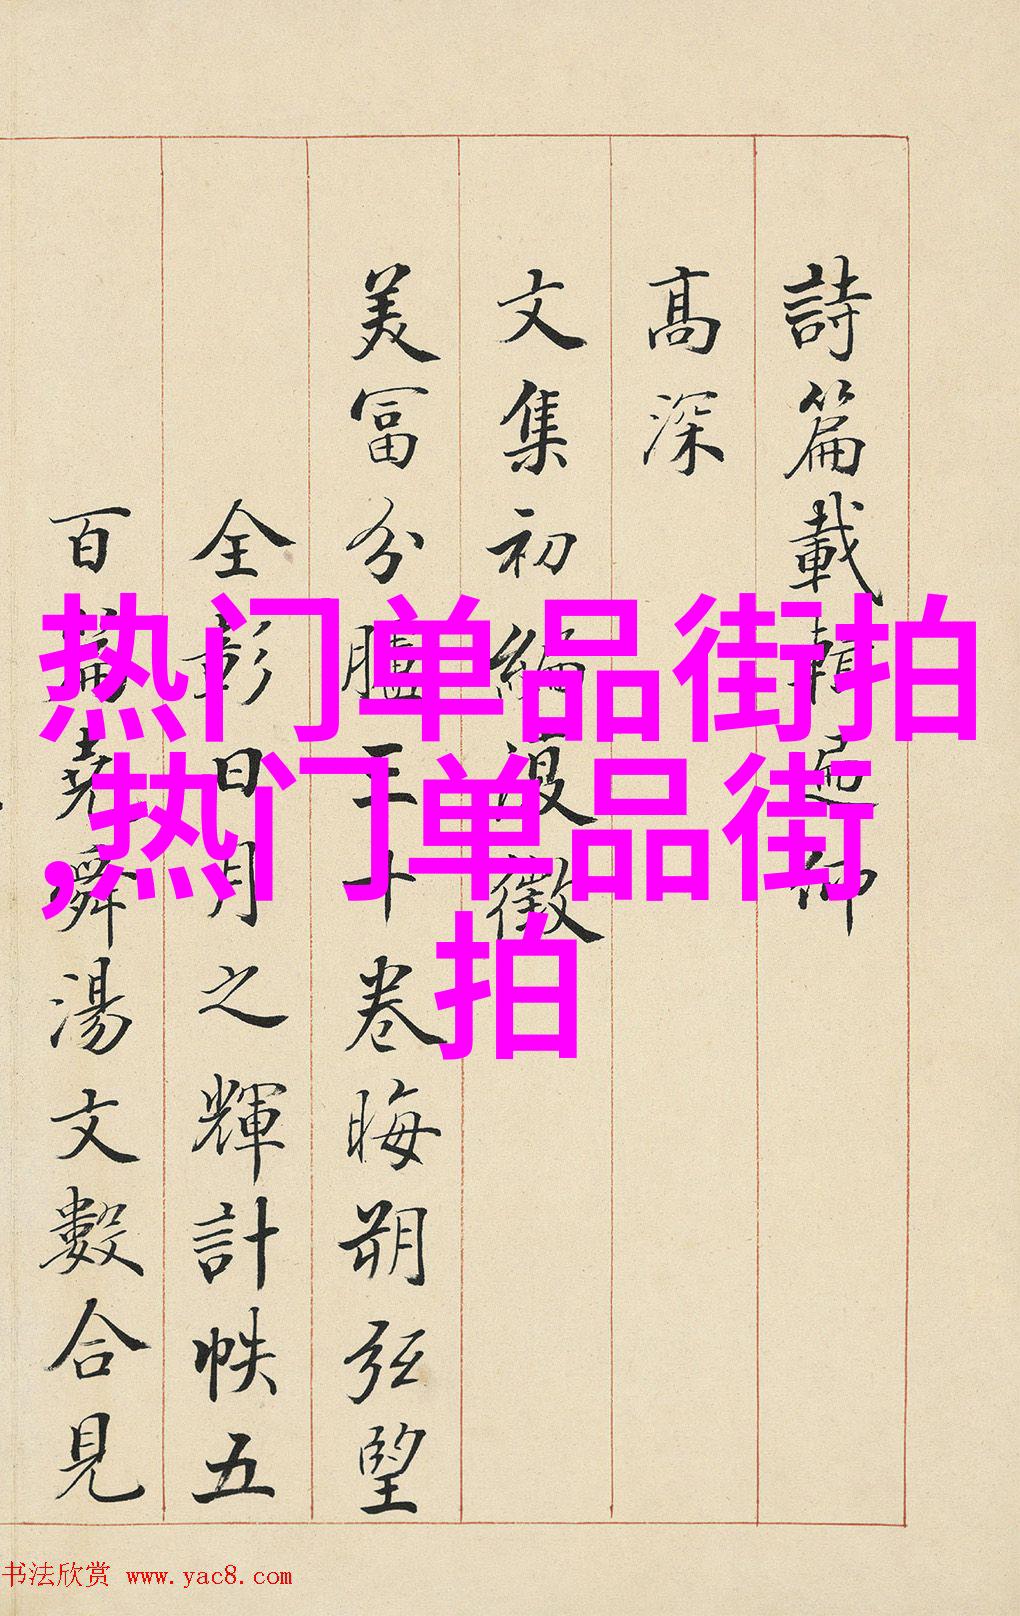 詩篇載輯遍仰
高深
文集初編復徵
美富分臚三十卷晦朔弦望
全彰日月之輝計帙五
百篇堯舜湯文數合見
热门单品街拍
,热门单品街
拍
书法欣赏 www.yac8.com